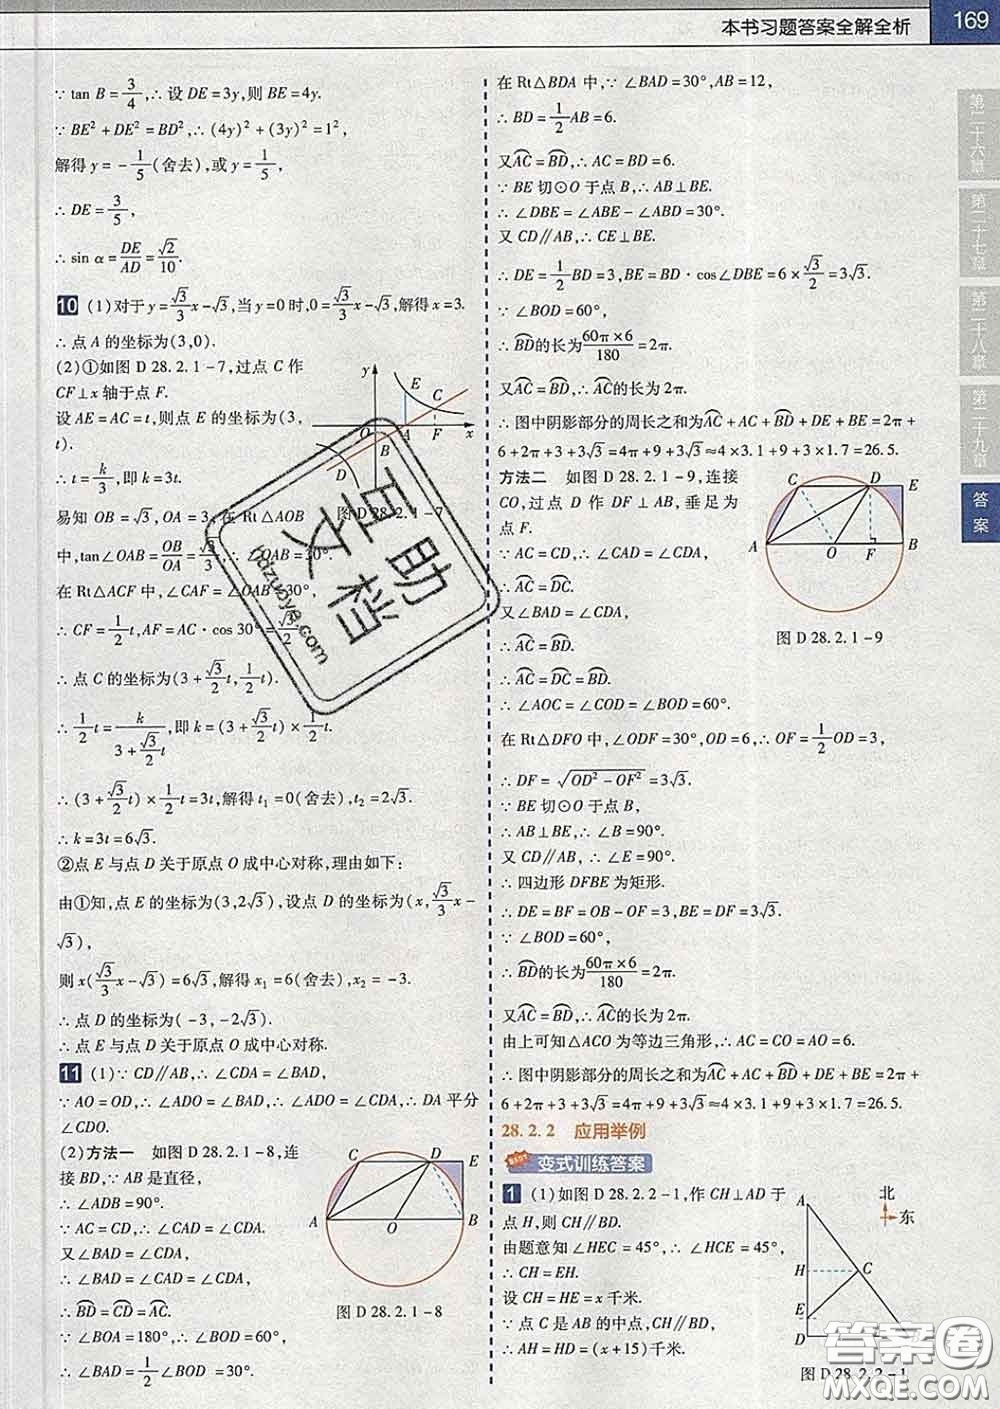 本书习题答案全解全析 169
∵ tan B = 3/4, ∴ 设 DE = 3y, 则 BE = 4y.
∵ BE² + DE² = BD², ∴ (4y)² + (3y)² = 1²,
解得 y = -1/5 (舍去), 或 y = 1/5,
∴ DE = 3/5,
∴ sin α = DE/AD = √2/10.
10 (1) 对于 y = √3/3 x - √3, 当 y = 0 时, 0 = √3/3 x - √3, 解得 x = 3.
∴ 点 A 的坐标为(3,0).
(2)①如图 D 28.2.1-7, 过点 C 作
CF⊥x 轴于点 F.
设 AE = AC = t, 则点 E 的坐标为(3,
t).
∴ t = k/3, 即 k = 3t.
易知 OB = √3, OA = 3, 在 Rt△AOB
中, tan∠OAB = OB/OA = √3/3, ∴ ∠OAB = 30°.
在 Rt△ACF 中, ∠CAF = ∠OAB = 30°,
∴ CF = 1/2 t, AF = AC · cos 30° = √3/2 t,
∴ 点 C 的坐标为(3 + √3/2 t, 1/2 t).
∴ 1/2 t = k/(3 + √3/2 t), 即 k = (3 + √3/2 t) × 1/2 t.
∴ (3 + √3/2 t) × 1/2 t = 3t, 解得 t₁ = 0(舍去), t₂ = 2√3.
∴ k = 3t = 6√3.
②点 E 与点 D 关于原点 O 成中心对称, 理由如下:
由①知, 点 E 的坐标为(3, 2√3), 设点 D 的坐标为(x, √3/3 x -
√3),
则 x(√3/3 x - √3) = 6√3, 解得 x₁ = 6(舍去), x₂ = -3.
∴ 点 D 的坐标为(-3, -2√3).
∴ 点 E 与点 D 关于原点 O 成中心对称.
11 (1) ∵ CD∥AB, ∴ ∠CDA = ∠BAD,
∵ AO = OD, ∴ ∠ADO = ∠BAD, ∴ ∠ADO = ∠CDA, ∴ DA 平分
∠CDO.
(2)方法一 如图 D 28.2.1-8, 连
接 BD, ∵ AB 是直径,
∴ ∠ADB = 90°.
∵ AC = CD, ∴ ∠CAD = ∠CDA.
又∠BAD = ∠CDA,
∴ ∠BAD = ∠CAD = ∠CDA,
∴ ⌒BD = ⌒CD = ⌒AC.
∵ ∠BOA = 180°, ∴ ∠BOD = 60°,
∴ ∠BAD = 1/2 ∠BOD = 30°.
y E C O A F x B D
图 D 28.2.1-7
C D E A O B
图 D 28.2.1-8
在 Rt△BDA 中, ∵ ∠BAD = 30°, AB = 12,
∴ BD = 1/2 AB = 6.
又⌒AC = ⌒BD, ∴ AC = BD = 6.
∵ BE 切⊙O 于点 B, ∴ AB⊥BE.
∴ ∠DBE = ∠ABE - ∠ABD = 30°.
又 CD∥AB, ∴ CE⊥BE.
∴ DE = 1/2 BD = 3, BE = BD · cos∠DBE = 6 × √3/2 = 3√3.
∵ ∠BOD = 60°,
∴ ⌒BD的长为 60π×6/180 = 2π.
又⌒AC = ⌒BD, ∴ ⌒AC的长为 2π.
∴ 图中阴影部分的周长之和为⌒AC + AC + ⌒BD + DE + BE = 2π +
6 + 2π + 3 + 3√3 = 4π + 9 + 3√3 ≈ 4×3.1 + 9 + 3×1.7 = 26.5.
方法二 如图 D 28.2.1-9, 连接
CO, 过点 D 作 DF⊥AB, 垂足为
点 F.
∵ AC = CD, ∴ ∠CAD = ∠CDA,
∴ ⌒AC = ⌒DC.
又∠BAD = ∠CDA,
∴ ⌒AC = ⌒BD.
∴ ⌒AC = ⌒DC = ⌒BD.
∴ ∠AOC = ∠COD = ∠BOD = 60°.
在 Rt△DFO 中, ∠ODF = 30°, OD = 6, ∴ OF = 1/2 OD = 3,
∴ DF = √(OD² - OF²) = 3√3.
∵ BE 切⊙O 于点 B,
∴ AB⊥BE, ∴ ∠B = 90°.
又 CD∥AB, ∴ ∠E = 90°.
∴ 四边形 DFBE 为矩形.
∴ DE = BF = OB - OF = 3, BE = DF = 3√3.
∵ ∠BOD = 60°,
∴ ⌒BD的长为 60π×6/180 = 2π.
又⌒AC = ⌒BD, ∴ ⌒AC的长为 2π.
由上可知△ACO 为等边三角形, ∴ AC = CO = AO = 6.
∴ 图中阴影部分的周长之和为⌒AC + AC + ⌒BD + DE + BE = 2π +
6 + 2π + 3 + 3√3 = 4π + 9 + 3√3 ≈ 4×3.1 + 9 + 3×1.7 = 26.5.
C D E A O F B
图 D 28.2.1-9
28.2.2 应用举例
变式训练答案
1 (1) 如图 D 28.2.2-1, 作 CH⊥AD 于
点 H, 则 CH∥BD.
由题意知∠HEC = 45°, ∴ ∠HCE = 45°,
∴ CH = EH.
设 CH = HE = x 千米.
∵ 点 C 是 AB 的中点, CH∥BD,
∴ AH = HD = (x + 15)千米.
A 北 东 H C E D
图 D 28.2.2-1
第二十六章
第二十七章
第二十八章
第二十九章
答案
百文助档
hdzuoye.com
答案圈
MXQE.COM